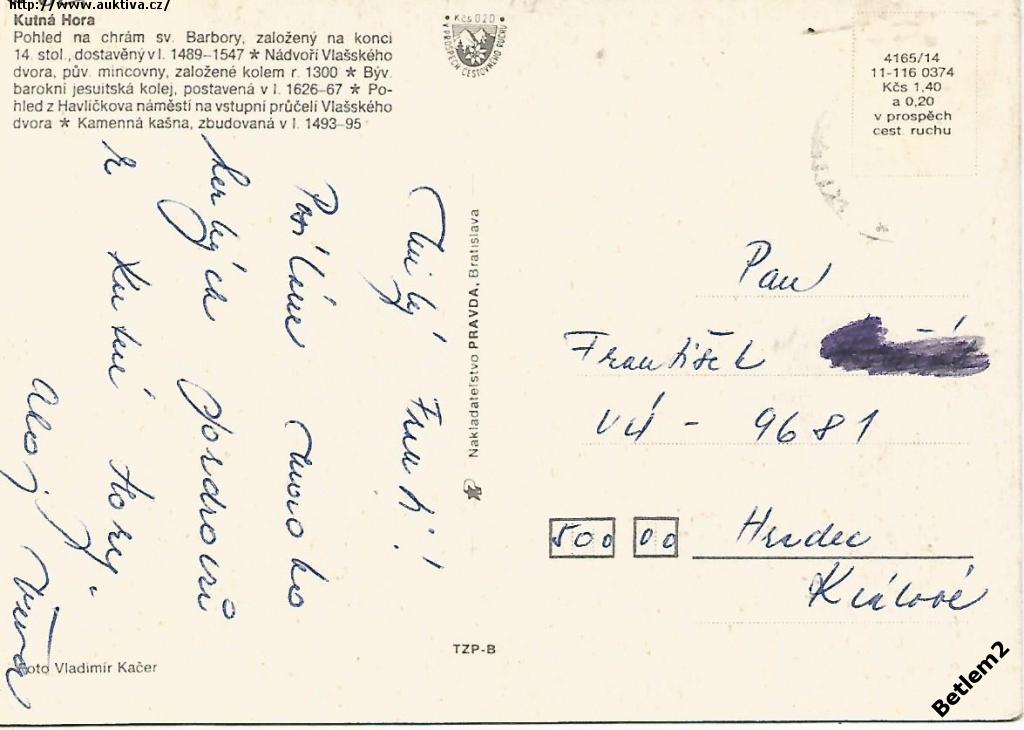 http://www.auktiva.cz/
Kutná Hora
Pohled na chrám sv. Barbory, založený na konci
14. stol., dostavěný v l. 1489–1547 * Nádvoří Vlašského
dvora, pův. mincovny, založené kolem r. 1300 * Býv.
barokní jesuitská kolej, postavená v l. 1626–67 * Po-
hled z Havlíčkova náměstí na vstupní průčelí Vlašského
dvora * Kamenná kašna, zbudovaná v l. 1493–95
• Kčs 0,20 •
V PROSPĚCH CESTOVNÉHO RUCHU
4165/14
11-116 0374
Kčs 1,40
a 0,20
v prospěch
cest. ruchu
Milý Frank!
Posílám mnoho
hezkých pozdravů
z Kutné Hory.
Ahoj
Nakladatelstvo PRAVDA, Bratislava
Pan
František
VÚ - 9681
500 00 Hradec
Králové
TZP-B
Foto Vladimír Kačer
Betlem2